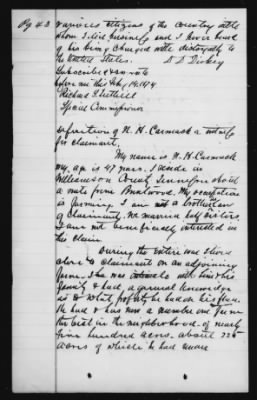 Pg 43
various citizens of the country with
whom I did business and I never heard
of his being charged with disloyalty to
the United States. D. D. Dickey
Subscribed & sworn to
before me this May 19 1874
Richard
Special Commissioner
Deposition of N. H. Carmack a witness
for claimant.
My name is N. H. Carmack
my age is 47 years. I reside in
Williamson County Tennessee about
a mile from Brentwood. My occupation
is farming I am a brother in law
of Claimant, we married half sisters.
I am not beneficially interested in
his claim.
During the entire war I lived
close to claimant on an adjoining
farm. I was intimate with him & his
family & had a general knowledge
as to what property he had on his farm.
He had & has now a number one farm
the best in the neighborhood of nearly
five hundred acres. about 225
acres of which he had under